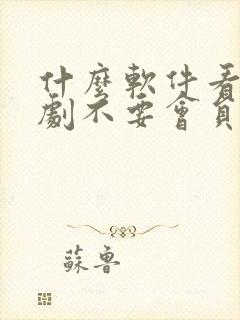 什麼軟件看
劇不要會員
蘇魯